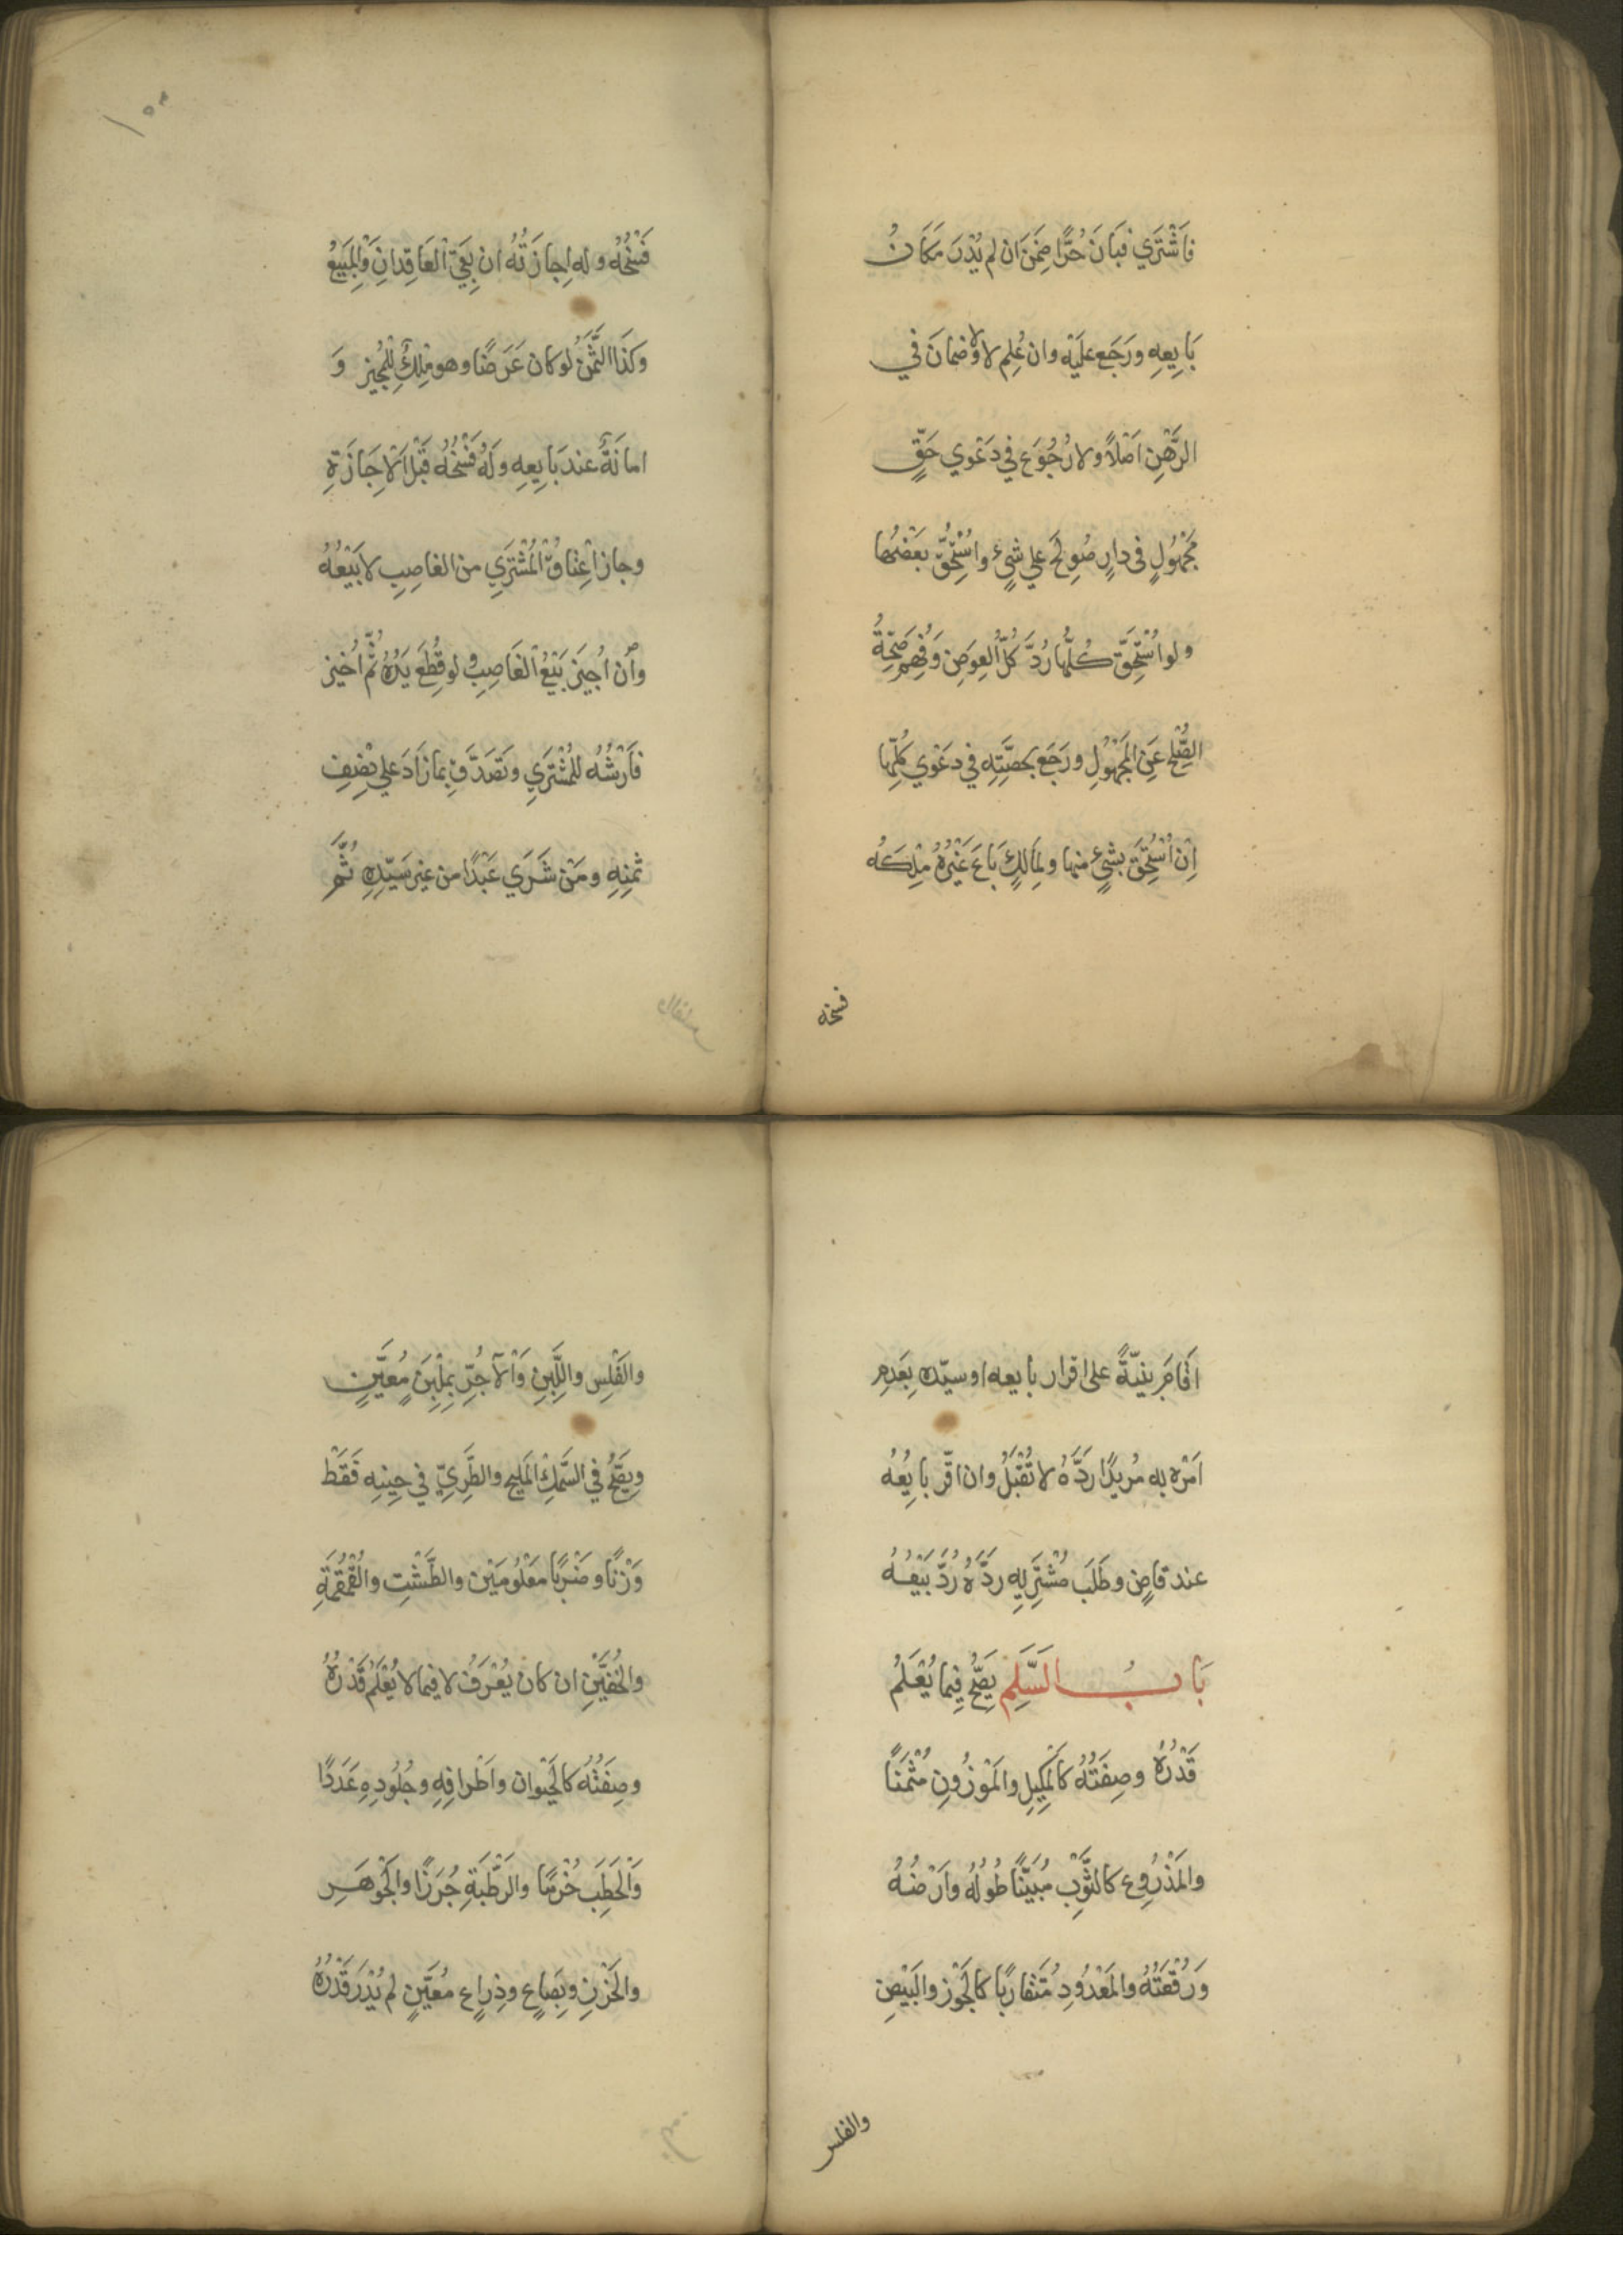 فَاشْتَرَي فَبَانَ حُرًّا ضَمِنَ ان لم يُدْرَ مَكَانُ
بَايِعِهِ ورَجَع علَيْهِ وان عُلِم لا ولا ضمانَ في
الرَّهْنِ اَصْلاً ولا رُجُوَع في دَعْوي حَقٍّ
مَجْهُولٍ في دارٍ صُولِحَ علي شيءٍ واسْتُحِقَّ بَعْضُها
ولو اسْتُحِقَّ كُلُّها رُدَّ كُلُّ العِوَضِ وَفُهِمَ صِحَّةُ
الصُّلْحِ عَنِ المَجْهُولِ ورَجَعَ بحصَّتِهِ في دَعْوي كُلِّها
اِنْ اسْتُحِقَّ بشيءٍ منها ولِمَالِكٍ بَاعَ غَيْرُهُ مِلْكَهُ
فسخه
١٥٣
فَسْخُهُ وله اِجازَتُهُ ان بَقِيَ العَاقِدانِ وَالمَبِيعُ
وكَذَا الثَّمَنُ لو كان عَرَضًا وهو مِلْكٌ لِلْمُجِيز وَ
امانَةٌ عند بَايِعِهِ ولَهُ فَسْخُهُ قَبْلَ الاِجَازَةِ
وجاز اعْتَاقُ المُشْتَرَي من الغاصِبِ لا بَيْعُهُ
وان اُجِيزَ بَيْعُ الغَاصِبِ ولو قُطِعَ يَدُهُ ثُمَّ اُجيز
فَاَرْشُهُ للمُشْتَرَي وتَصَدَّقَ بما زَادَ علي نِصْفِ
ثَمَنِهِ ومَنْ شَرَي عَبْدًا من غيرِ سَيِّدِهِ ثُمَّ
اَقَامَ بَيِّنَةً على اقرار بايعه او سيّده بِعَدمِ
اَمْرِه به مُريدًا رَدَّهُ لا تُقْبَلُ وان اقَّر بايِعُهُ
عند قاضٍ وطَلَبَ مُشْتَرِيهِ رَدَّهُ رُدَّ بَيْعُهُ
بَابُ السَّلَمِ يَصِّحُ فِيما يُعْلَمُ
قَدْرُهُ وصِفَتُهُ كالمَكِيلِ والمَوْزُونِ مُثْمَنًا
والمَذْرُوعِ كالثَّوْبِ مُبَيَّنًا طُولُهُ وعَرْضُهُ
وَرُقْعَتُهُ والمَعْدُودِ مُتَقارِبًا كالجَوْز والبَيْضِ
والفلس
والفَلْسِ واللَّبِنِ وَالآجُرِّ بمِلْبَنٍ مُعَيَّنٍ
ويَصِّحُ في السَّمَكِ المَليحِ والطَّرِيِّ في حِينِهِ فَقَطْ
وَزْنًا وضَرْبًا مَعْلُومَيْن والطَّشْتِ والقُمْقُمَةِ
والخُفَّيْنِ ان كان يُعْرَفُ لا فيما لا يُعْلَمُ قَدْرُهُ
وصِفَتُهُ كالحَيْوان واَطْرافِهِ وجُلُودِهِ عَدَدًا
والحَطَبِ حُزَمًا والرَّطْبَةِ جُرَزًا والجَوْهَرِ
والخَرَزِ وبِصَاعٍ وذِرِاعٍ مُعَيَّنٍ لم يُدْرَ قَدْرُهُ